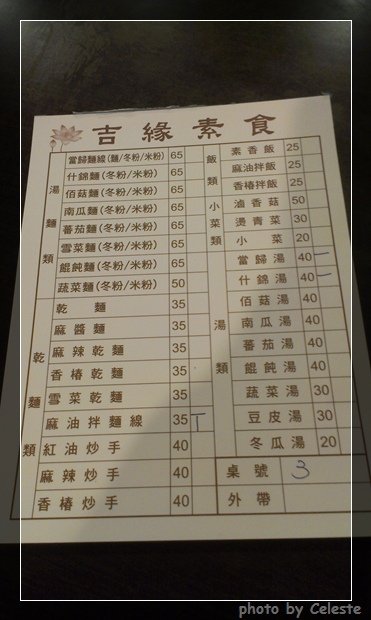 吉緣素食
湯麵類
當歸麵線(麵/冬粉/米粉) 65
什錦麵(冬粉/米粉) 65
佰菇麵(冬粉/米粉) 65
南瓜麵(冬粉/米粉) 65
蕃茄麵(冬粉/米粉) 65
雪菜麵(冬粉/米粉) 65
餛飩麵(冬粉/米粉) 65
蔬菜麵(冬粉/米粉) 50
乾麵類
乾麵 35
麻醬麵 35
麻辣乾麵 35
香椿乾麵 35
雪菜乾麵 35
麻油拌麵線 35 T
紅油炒手 40
麻辣炒手 40
香椿炒手 40
飯類
素香飯 25
麻油拌飯 25
香椿拌飯 25
小菜類
滷香菇 50
燙青菜 30
小菜 20
湯類
當歸湯 40 一
什錦湯 40 一
佰菇湯 40
南瓜湯 40
蕃茄湯 40
餛飩湯 40
蔬菜湯 30
豆皮湯 30
冬瓜湯 20
桌號 3
外帶
photo by Celeste